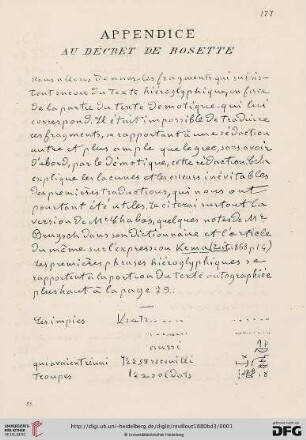 177
APPENDICE
AU DÉCRET DE ROSETTE
Nous allons donner les fragments qui subsis-
tent encore du texte hiéroglyphique, en face
de la partie du texte démotique qui leur
correspond. Il était impossible de traduire
ces fragments, se rapportant à une rédaction
autre et plus ample que le grec, sans avoir
d'abord, par le démotique, cette rédaction. Cela
explique les lacunes et les erreurs inévitables
des premières traductions, qui nous ont
pourtant été utiles. Je citerai surtout la
version de Mr Chabas, quelques notes de Mr
Brugsch dans son dictionnaire et l'article
du même sur l'expression Kema (Zeit. 1868 p. 14)
Les premières phrases hiéroglyphiques se
rapportent à la portion du texte autographiée
plus haut à la page 29.
Les impies
aussi
qui avaient réuni recueilli
troupes soldats
http://digi.ub.uni-heidelberg.de/diglit/revillout1880bd3/0001
© Universitätsbibliothek Heidelberg
UNIVERSITÄTS-
BIBLIOTHEK
HEIDELBERG
gefördert durch die
DFG